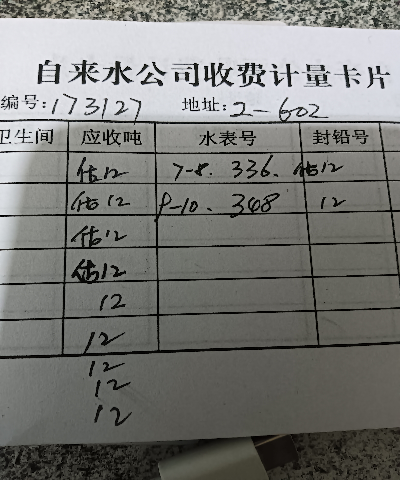 自来水公司收费计量卡片
编号:173127 地址:2-602
卫生间 应收吨 水表号 封铅号
估12 7-8. 336. 估12
估12 9-10. 348 12
估12
估12
12
12
12
12
12